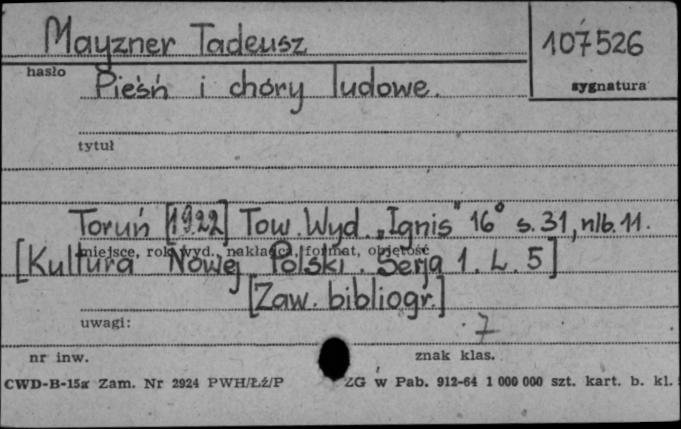 Mayzner Tadeusz
107526
hasło
sygnatura
Pieśń i chóry ludowe.
tytuł
Toruń [1922] Tow. Wyd. „Ignis" 16° s. 31, nlb. 11.
miejsce, rok wyd., nakładca, format, objętość
[Kultura Nowej Polski. Serja 1. L. 5]
[Zaw. bibliogr.]
uwagi:
7
nr inw.
znak klas.
CWD-B-15a Zam. Nr 2924 PWH/Łź/P ZG w Pab. 912-64 1 000 000 szt. kart. b. kl.